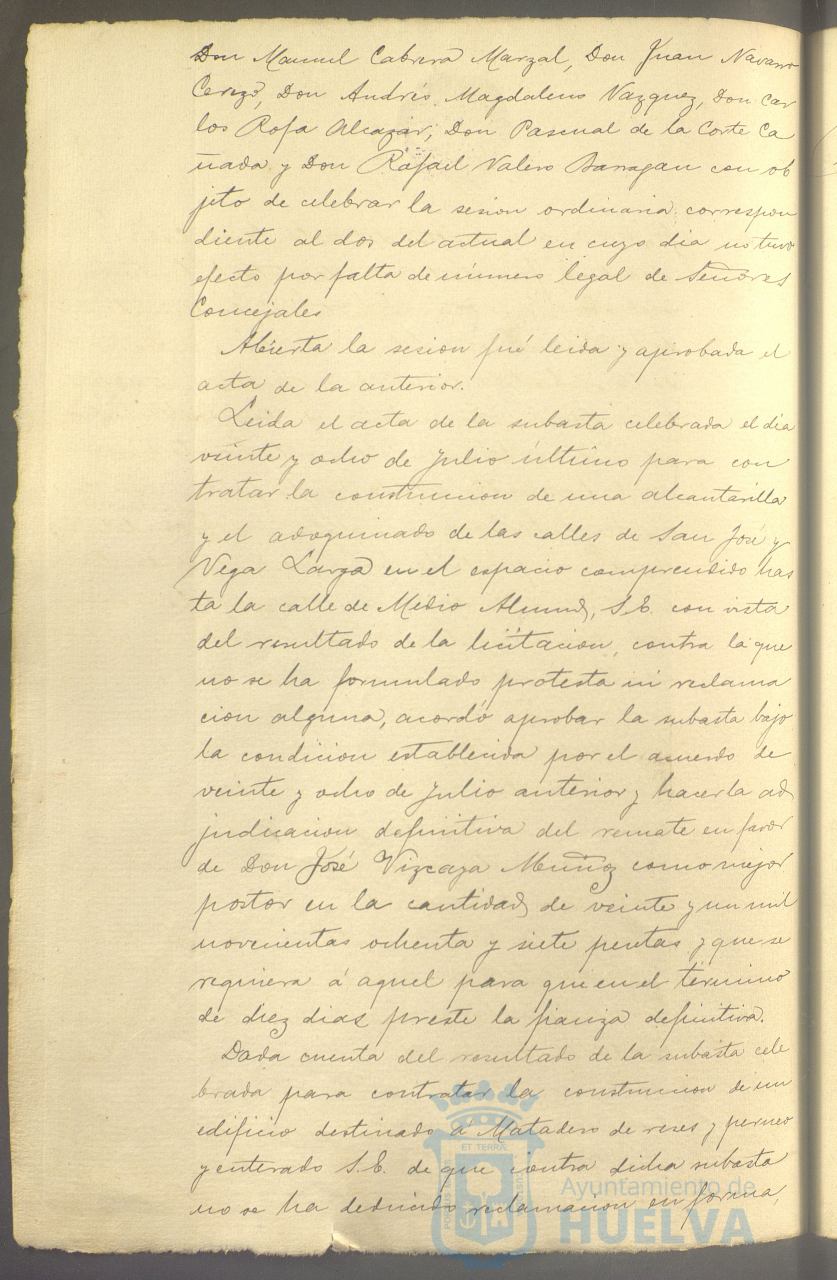 Don Manuel Cabrera Marzal, Don Juan Navarro
Cerezo, Don Andrés Magdaleno Vazquez, Don Car
los Rofa Alcazar, Don Pascual de la Corte Ca
ñada y Don Rafael Valero Barragan con ob
jeto de celebrar la sesion ordinaria correspon
diente al dos del actual en cuyo dia no tuvo
efecto por falta de número legal de Señores
Concejales
Abierta la sesion fué leida y aprobada el
acta de la anterior.
Leida el acta de la subasta celebrada el dia
veinte y ocho de Julio último para con
tratar la construccion de una alcantarilla
y el adoquinado de las calles de San José y
Vega Larga en el espacio comprendido has
ta la calle de Medio Almud, S.E. con vista
del resultado de la licitacion, contra la que
no se ha formulado protesta ni reclama
cion alguna, acordó aprobar la subasta bajo
la condicion establecida por el acuerdo de
veinte y ocho de Julio anterior y hacer la ad
judicacion definitiva del remate en favor
de Don José Vizcaya Muñoz como mejor
postor en la cantidad de veinte y un mil
novecientas ochenta y siete pesetas y que se
requiera á aquel para que en el término
de diez dias preste la fianza definitiva.
Dada cuenta del resultado de la subasta cele
brada para contratar la construccion de un
edificio destinado á Matadero de reses y perneo
y enterado S.E. de que contra dicha subasta
no se ha deducido reclamacion en forma,
ET TERRAE
Ayuntamiento de
HUELVA